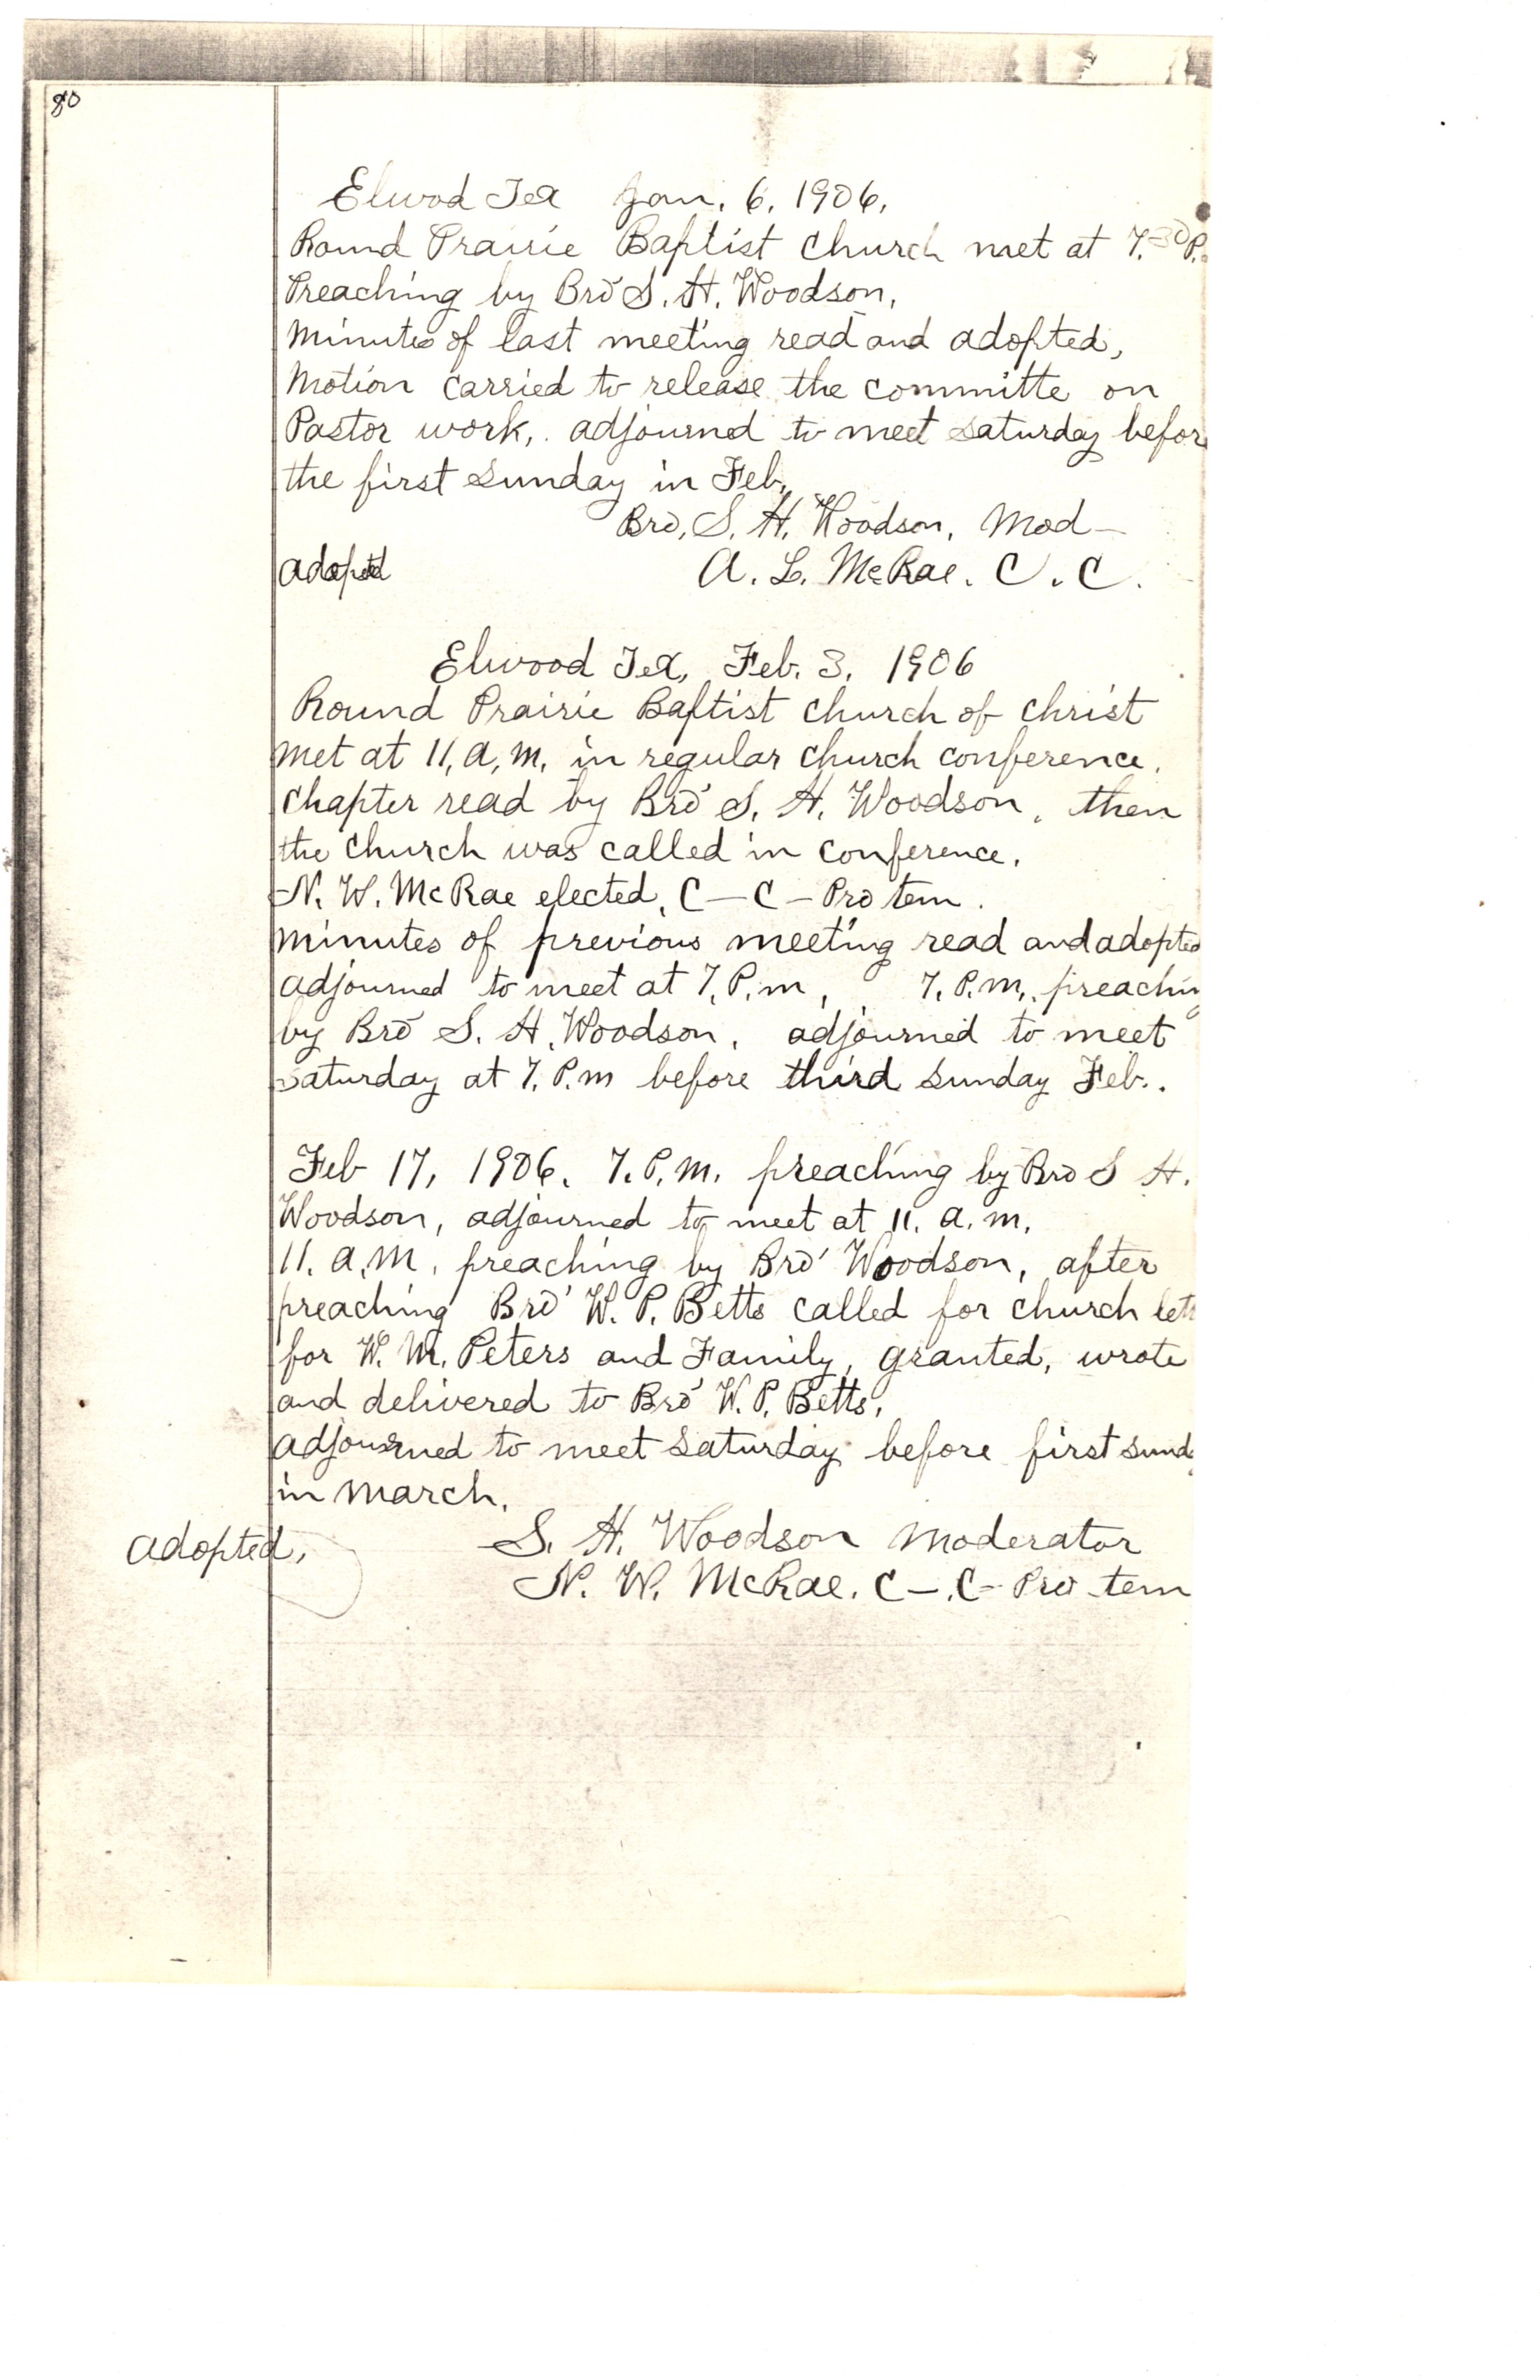 80
Elwod Tex Jan. 6, 1906,
Round Prairie Baptist church met at 7.30 P.
Preaching by Bro S. H. Woodson,
Minutes of last meeting read and adopted,
Motion carried to release the committe on
Pastor work, adjourned to meet Saturday befor
the first Sunday in Feb,
Bro, S. H. Woodson, Mod—
adopted A. L. McRae. C. C.
Elwood Tex, Feb. 3, 1906
Round Prairie Baptist church of christ
met at 11, a, m, in regular church conference,
chapter read by Bro S. H. Woodson, then
the church was called in conference,
N. W. McRae elected, C — C — Pro tem.
minutes of previous meeting read and adopted
adjourned to meet at 7, P. m, 7. P. m, preachin
by Bro S. H. Woodson, adjourned to meet
Saturday at 7. P. m before third Sunday Feb.
Feb 17, 1906, 7. P. m. preaching by Bro S H.
Woodson, adjourned to meet at 11. a. m.
11. a. m. preaching by Bro Woodson, after
preaching Bro W. P. Betts called for church let
for W. M. Peters and Family, granted, wrote
and delivered to Bro W. P. Betts,
adjourned to meet Saturday before first sund
in March,
adopted, S. H. Woodson Moderator
N. W. McRae. C —. C — Pro tem